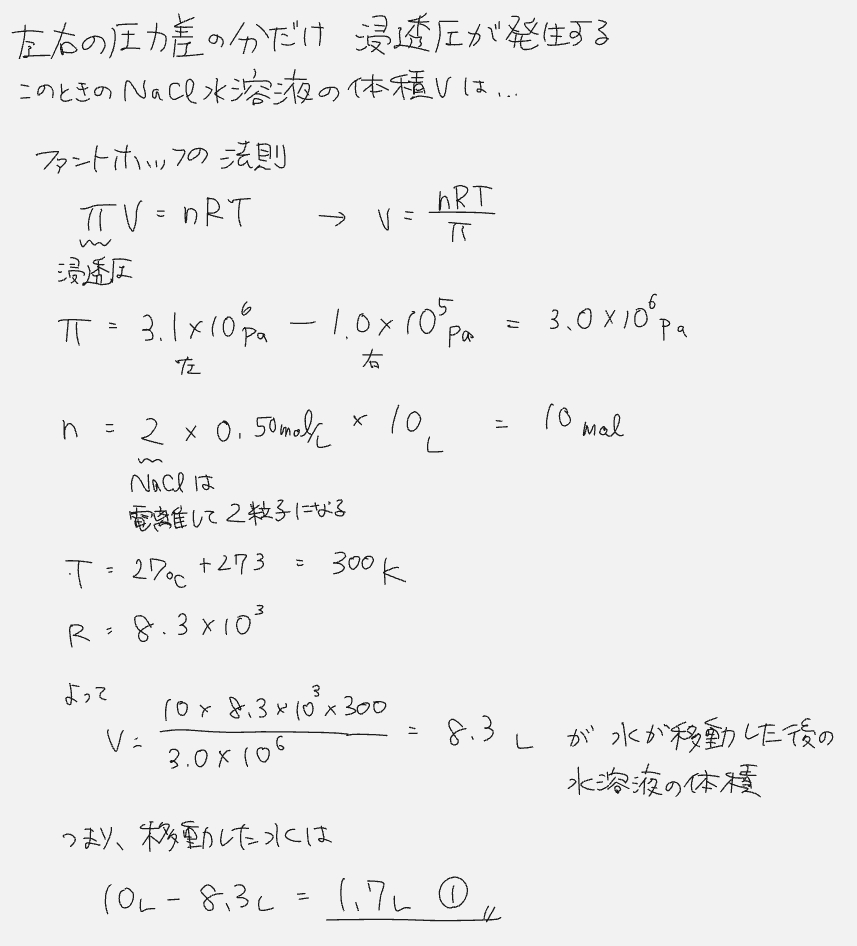 左右の圧力差の分だけ 浸透圧が発生する
このときのNaCl水溶液の体積Vは...
ファントホッフの法則
πV = nRT → V = nRT/π
浸透圧
π = 3.1×10⁶Pa − 1.0×10⁵Pa = 3.0×10⁶Pa
左 右
n = 2 × 0.50mol/L × 10L = 10mol
NaClは
電離して2粒子になる
T = 27℃ + 273 = 300K
R = 8.3×10³
よって
V = 10×8.3×10³×300/3.0×10⁶ = 8.3L が水が移動した後の
水溶液の体積
つまり、移動した水は
10L − 8.3L = 1.7L ①〃